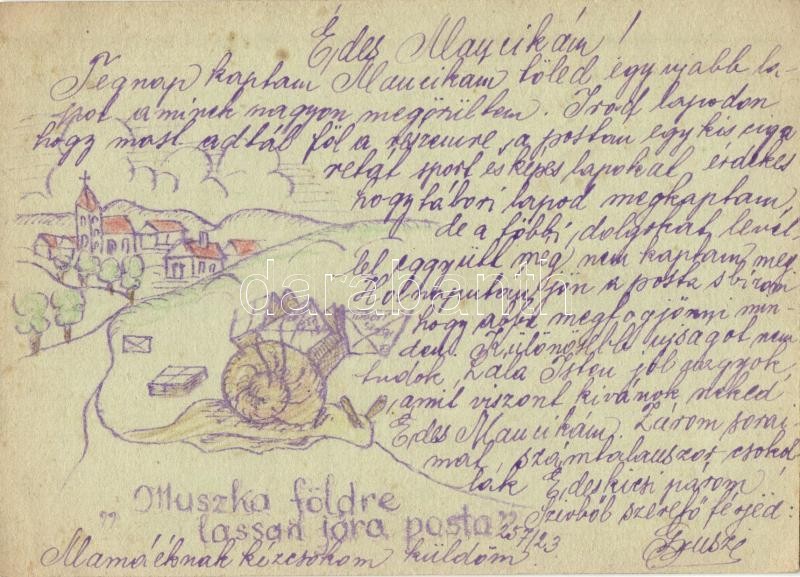 Édes Maucikám!
Tegnap kaptam Maucikám töled egy ujabb la-
pot aminek nagyon megörültem. Irod lapodon
hogy most adtál föl a részemre a postan egy kis ciga
retát sport es képes lapokat érdekes
hogy tábori lapod megkaptam,
de a többi dolgokat levél-
lel eggyütt még nem kaptam meg
Holnaputan jön a posta s birom
hogy abba meg fog jönni min-
den. Különösebb ujságot nem
tudok, Isten jól vagyok,
amit viszont kivánok neked
Édes Maucikám. Zárom sorai-
mat, számtalanszor csokol-
lak Édes kicsi párom
Szivböl szeretö férjed:
"Muszka földre
lassan jára posta"
Mamáéknak kézcsókom küldöm.
darabanth